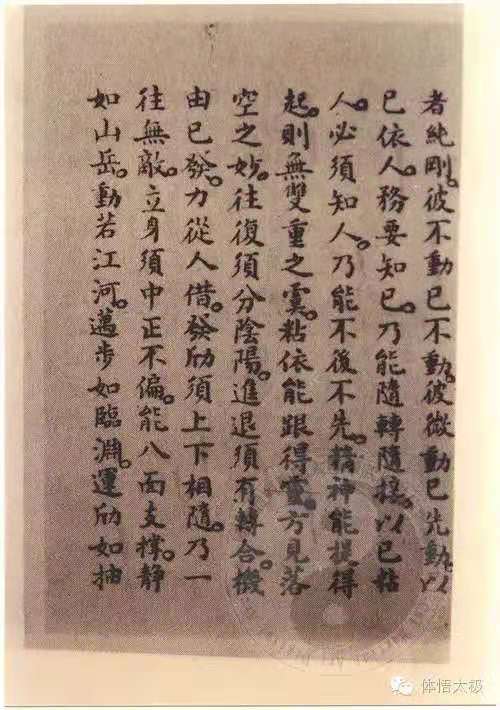 者純剛。彼不動己不動。彼微動己先動。以
己依人。務要知己。乃能隨轉隨接。以己粘
人。必須知人。乃能不後不先。精神能提得
起。則無雙重之虞。粘依能跟得靈。方見落
空之妙。往復須分陰陽。進退須有轉合。機
由己發。力從人借。發劲須上下相隨。乃一
往無敵。立身須中正不偏。能八面支撐。靜
如山岳。動若江河。邁步如臨淵。運劲如抽
体悟太极